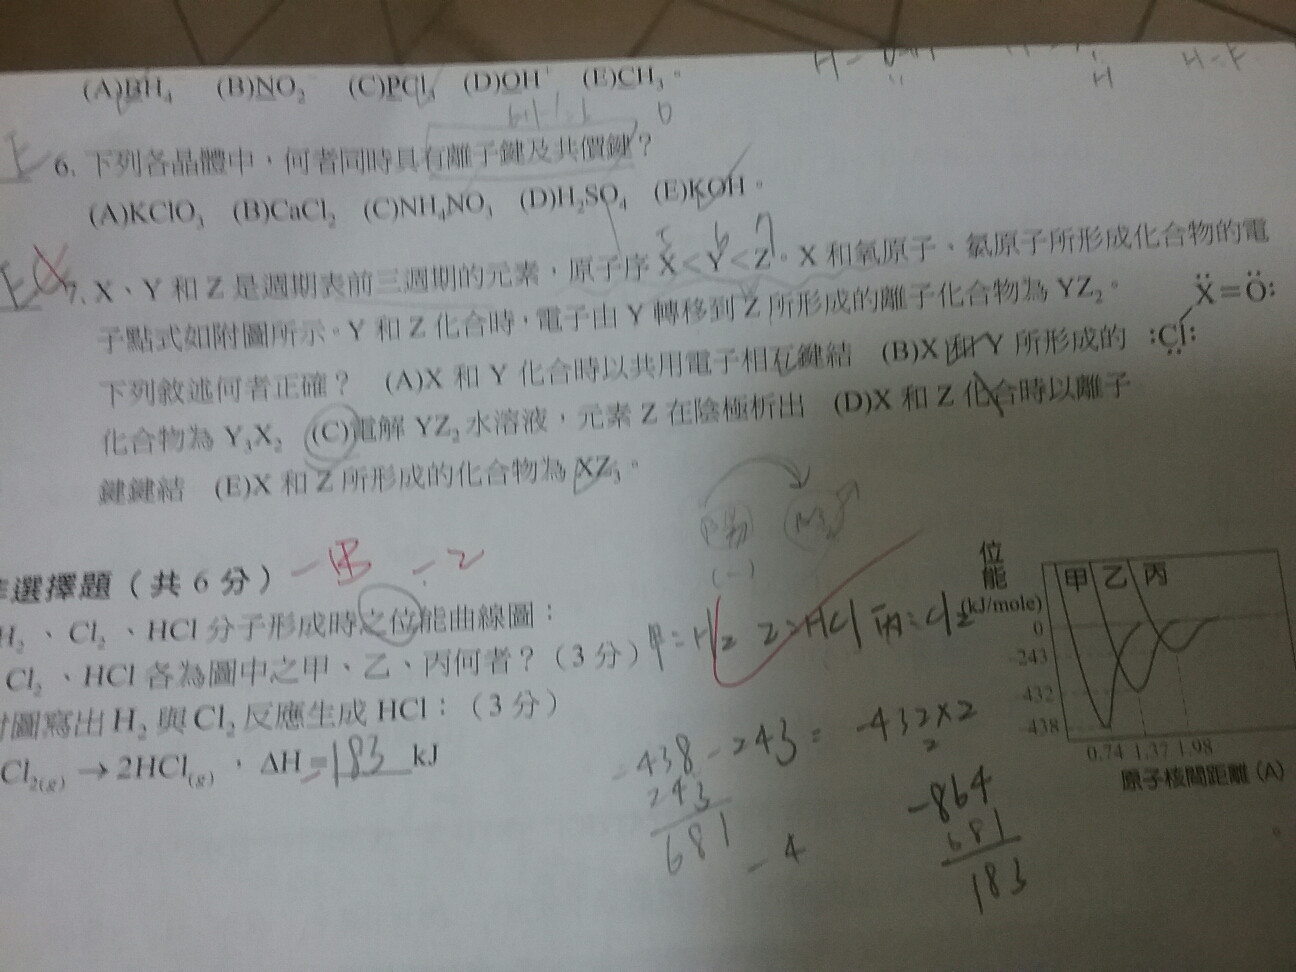 (A)BH₄ (B)NO₂ (C)PCl₅ (D)OH⁺ (E)CH₃。
H-F
H
E 6. 下列各晶體中，何者同時具有離子鍵及共價鍵？
(A)KClO₃ (B)CaCl₂ (C)NH₄NO₃ (D)H₂SO₄ (E)KOH。
5 6 7
E 7. X、Y 和 Z 是週期表前三週期的元素，原子序 X<Y<Z。X 和氧原子、氯原子所形成化合物的電
子點式如附圖所示。Y 和 Z 化合時，電子由 Y 轉移到 Z 所形成的離子化合物為 YZ₂。
Ẍ=Ö:
:Cl:
下列敘述何者正確？ (A)X 和 Y 化合時以共用電子相互鍵結 (B)X 和 Y 所形成的
化合物為 Y₃X₂ (C)電解 YZ₂ 水溶液，元素 Z 在陰極析出 (D)X 和 Z 化合時以離子
鍵鍵結 (E)X 和 Z 所形成的化合物為 XZ₃。
(-)
選擇題（共 6 分） -2
H₂、Cl₂、HCl 分子形成時之位能曲線圖：
Cl₂、HCl 各為圖中之甲、乙、丙何者？（3 分） 甲=H₂ 乙=HCl 丙=Cl₂
附圖寫出 H₂ 與 Cl₂ 反應生成 HCl：（3 分）
Cl₂(g) → 2HCl(g)，ΔH=183 kJ
位能
(kJ/mole)
甲 乙 丙
0
-243
-432
-438
0.74 1.37 1.98
原子核間距離 (A)
-438-243= -432×2
243
681
-4
-864
681
183